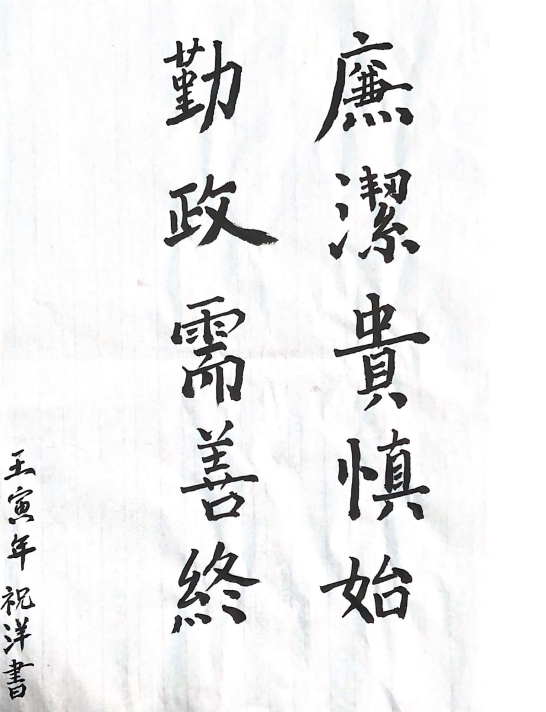 廉潔貴慎始
勤政需善終
壬寅年祝洋書